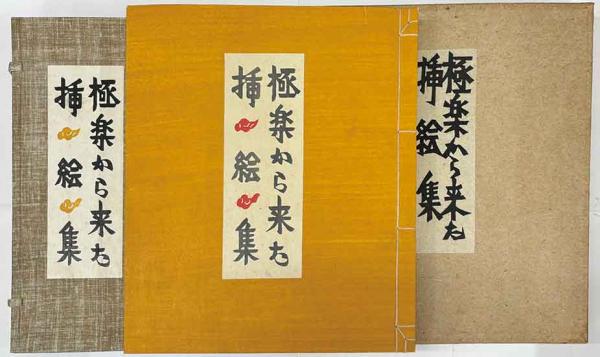 極楽から来た
挿絵集
極楽から来た
挿絵集
極楽から来た
挿絵集